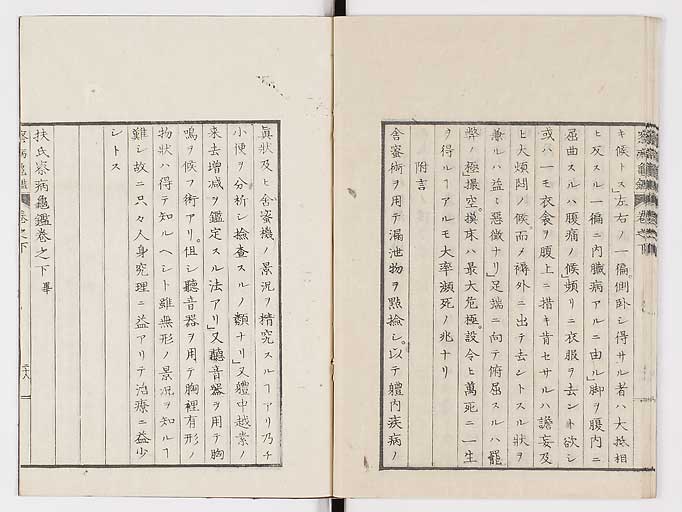 キ候トス」左右ノ一偏側卧シ得サル者ハ大抵相
ヒ反スル一偏ニ内臓病アルニ由ル」脚ヲ腹内ニ
屈曲スルハ腹痛ノ候頻リニ衣服ヲ去ント欲シ
或ハ一モ衣食ヲ腹上ニ措キ肯セサルハ譫妄及
ヒ大煩悶ノ候而メ褥外ニ出テ去ントスル状ヲ
兼ルハ益〻悪徴ナリ」足端ニ向テ俯屈スルハ罷
弊ノ極」撮空。摸床ハ最大危極。設令ヒ萬死ニ一生
ヲ得ルヿアルモ大率瀕死ノ兆ナリ
附言
舎密術ヲ用テ漏泄物ヲ點撿シ。以テ體内疾病ノ
真状及ヒ舎密機ノ景況ヲ精究スルヿアリ乃チ
小便ヲ分析シ撿査スルノ類ナリ」又體中越素ノ
来去増减ヲ鑑定スル法アリ」又聽音器ヲ用テ胸
鳴ヲ候フ術アリ。但シ聽音器ヲ用テ胸裡有形ノ
物状ハ得テ知ルヘシト雖無形ノ景况ヲ知ルヿ
難シ故ニ只々人身究理ニ益アリテ治療ニ益少
シトス
扶氏察病龜鑑巻之下畢
察病龜鑑 巻之下